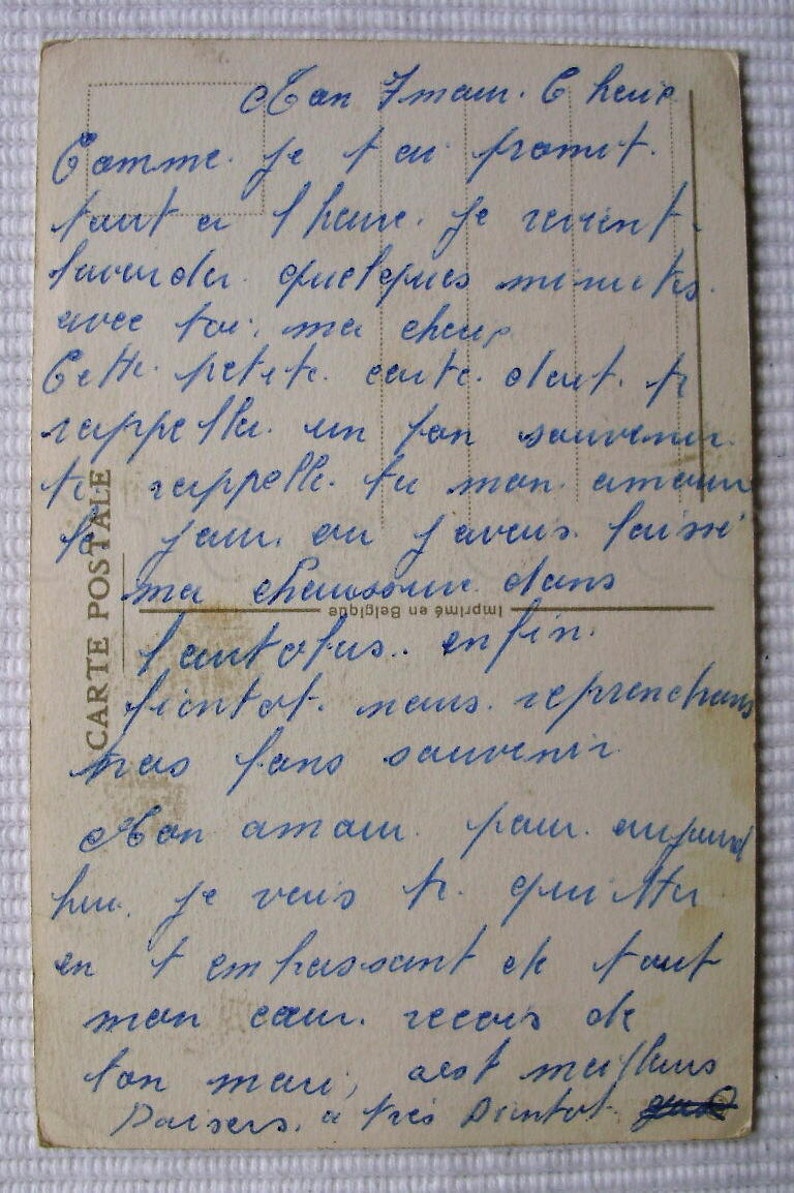 Mon Amour. Cherie
Comme. je t ai promit.
tout a l heure. je revient.
bavarder. quelques minutes.
avec toi, ma cherie
Cette. petite. carte. doit. te
rappeller. un bon souvenir.
te rappelle. tu mon. amour
le jour. ou j avais. laissé
ma chaussure. dans
l autobus.. enfin.
bientot. nous. reprendrons
nos bons souvenir
Mon amour. pour. aujourd
hui. je vais te. quitter
en t embrassant de tout
mon cœur. recois de
ton mari, ses meilleurs
Baisers. a très Bientot.
CARTE POSTALE
Imprimé en Belgique